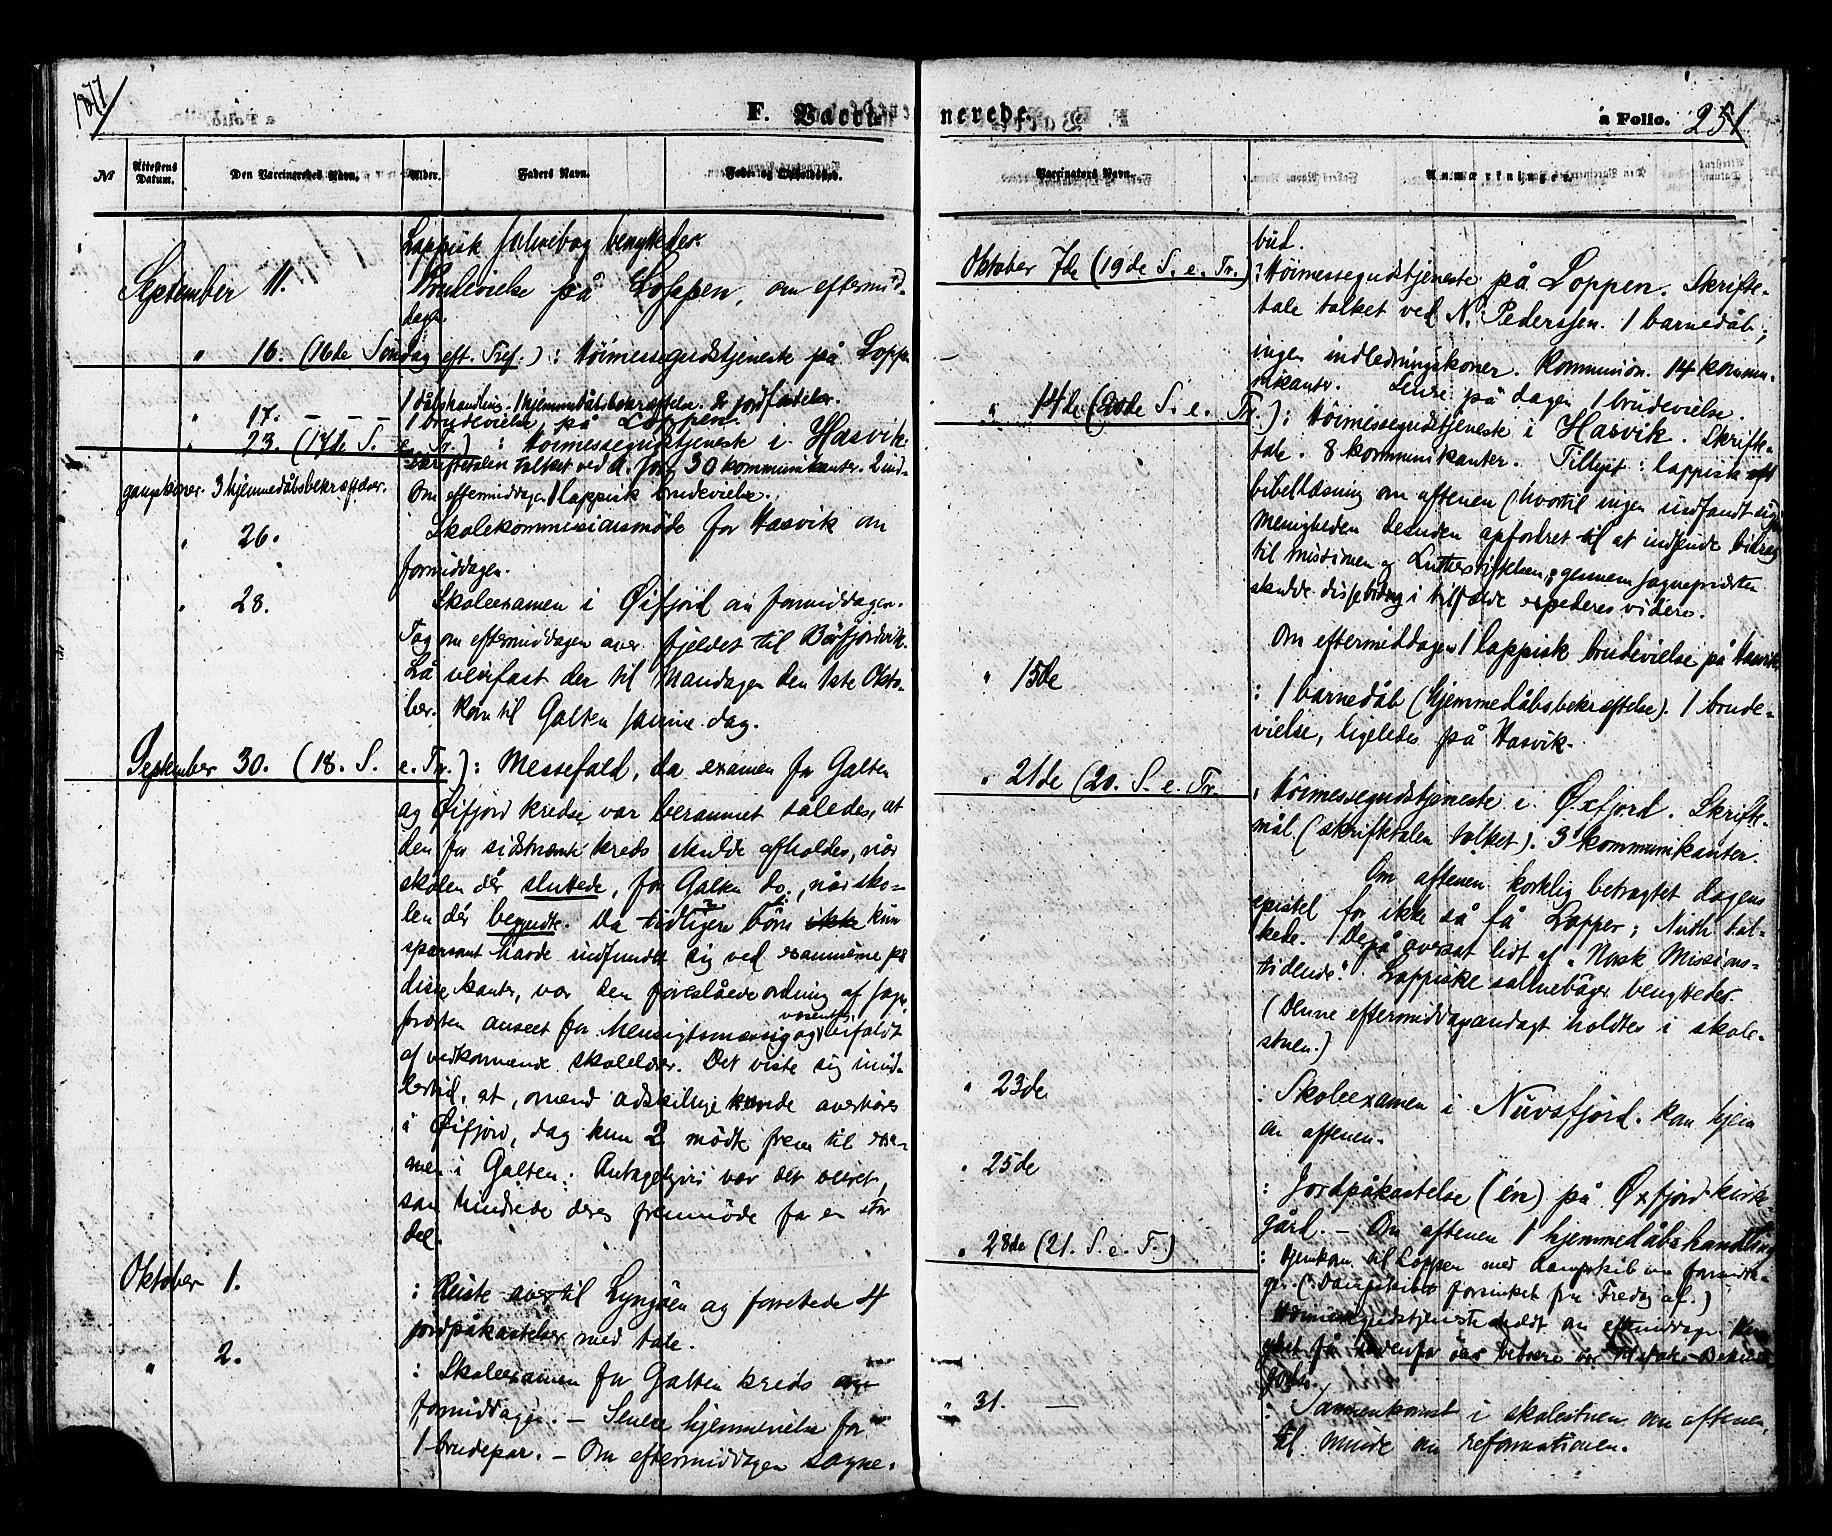 1877
F. Vacci-
№
Attestens Datum.
Den Vaccineredes Navn.
Alder.
Faders Navn.
Føde- og Opholdssted.
Lappisk salmebog benyttedes.
September 11. Brudevielse på Loppen, om eftermid-
dagen.
" 16. (16de Søndag eft. Tref.): Höimessegudstjeneste på Loppen
1 dåbshandling. 1 hjemmedåbsbekræftelse. 2 jordfæstelser.
" 17. – – – 1 brudevielse på Loppen.
" 23. (17de S. e. Tr.): Höimessegudstjeneste i Hasvik.
Skriftetalen tolket ved 30 kommunikanter. 2 ind-
gangskoner. 3 hjemmedåbsbekræftelser. Om eftermiddagen 1 lappisk brudevielse.
" 26. Skolekommissionsmöde for Hasvik om
formiddagen.
" 28. Skoleexamen i Øifjord om formiddagen.
Tog om eftermiddagen over fjeldet til Börfjordvik.
Lå veirfast der til Mandagen den 1ste Okto-
ber. Kom til Galten samme dag.
September 30. (18. S. e. Tr.): Messefald, da examen for Galten
og Øifjord kredse var berammet således, at
den for sidstnævnte kreds skulde afholdes, når
skolen dér sluttede, for Galten do., når sko-
len dér begyndte. Da tidligere börn ikke kun
sparsomt havde indfundet sig ved examinerne på
disse kanter, var den foreslåede ordning af sogne-
præsten anseet for hensigtsmæssig og bifaldt
af vedkommende skolelærer. Det viste sig imid-
lertid, at, omend adskillige kunde overhöres
i Øifjord, dog kun 2 mödte frem til exa-
men i Galten: Antageligvis var det veiret,
som hindrede deres fremmöde for en stor
del.
Oktober 1. : Reiste over til Lyngöen og forrettede 4
jordpåkastelser med tale.
" 2. : Skoleexamen for Galten kreds om
formiddagen. – Senere hjemmevielse for
1 brudepar. – Om eftermiddagen sogne-
nerede.
à Folio. 251
Vaccinators Navn.
Anmærkninger.
bud.
Oktober 7de (19de S. e. Tr.) : Höimessegudstjeneste på Loppen. Skrifte-
tale tolket ved N. Pederssen. 1 barnedåb;
ingen indledningskoner. Kommunion. 14 kommu-
nikanter. Senere på dagen 1 brudevielse.
" 14de (20de S. e. Tr.): Höimessegudstjeneste i Hasvik. Skrifte-
tale. 8 kommunikanter. Tillyst: lappisk
bibellæsning om aftenen (hvortil ingen indfandt sig)
Menigheden desuden opfordret til at indsende bidrag
til missionen og Lutherstiftelsen; gennem sognepræsten
skulde disse bidrag i tilfælde expederes videre.
Om eftermiddagen 1 lappisk brudevielse på Hasvik
" 15de : 1 barnedåb (hjemmedåbsbekræftelse). 1 brude-
vielse, ligeledes på Hasvik.
" 21de (20. S. e. Tr. : Höimessegudstjeneste i Øxfjord. Skrifte-
mål (skriftetalen tolket). 3 kommunikanter.
Om aftenen kortelig betragtet dagens
epistel for ikke så få Lapper; Nuth tol-
kede. Derpå oversat lidt af "Norsk Missions-
tidende". Lappiske salmebøger benyttedes.
(Denne eftermiddagsandagt holdtes i skole-
stuen.)
" 23de : Skoleexamen i Nuvsfjord. kom hjem
om aftenen.
" 25de : Jordpåkastelse (én) på Øxfjord kirke-
gård. – Om aftenen 1 hjemmedåbshandling
" 28de (21. S. e. T.) : Hjemkom til Loppen med dampskib om formidda-
gen. (Dampskibet forsinket fra Fredag af.)
Höimessegudstjeneste holdt om eftermiddagen.
" 31. – : Sammenkomst i skolestuen om aftenen,
til minde om reformationen.